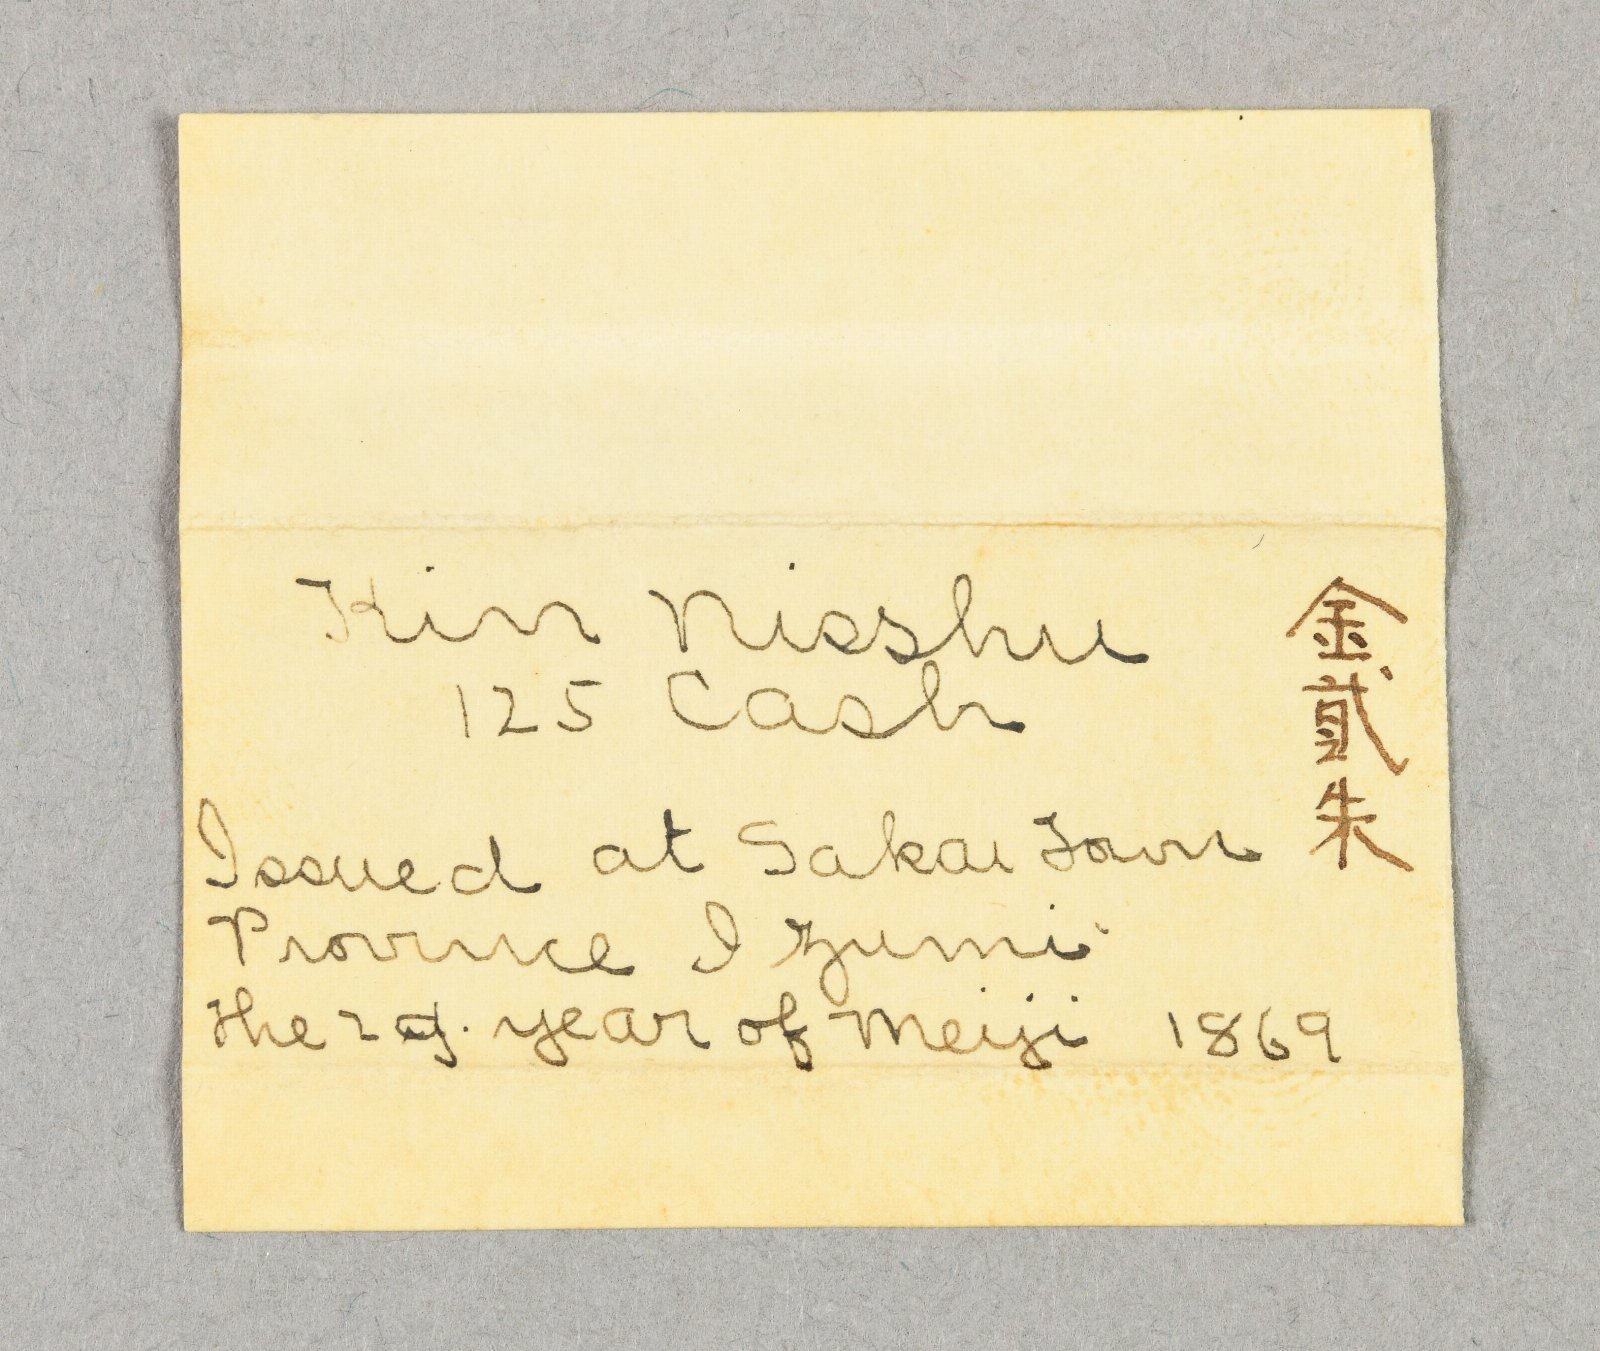 Kin Nisshu
125 Cash
Issued at Sakai Town
Province Izumi
the 2 year of Meiji 1869
金貳朱